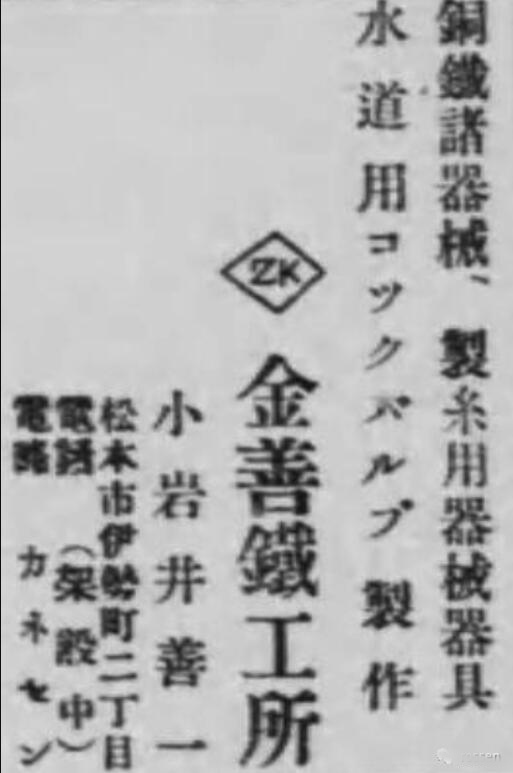 銅鐵諸器械、製糸用器械器具
水道用コックバルブ製作
ZK
金善鐵工所
小岩井善一
松本市伊勢町二丁目
電話（架設中）
電略 カネセン